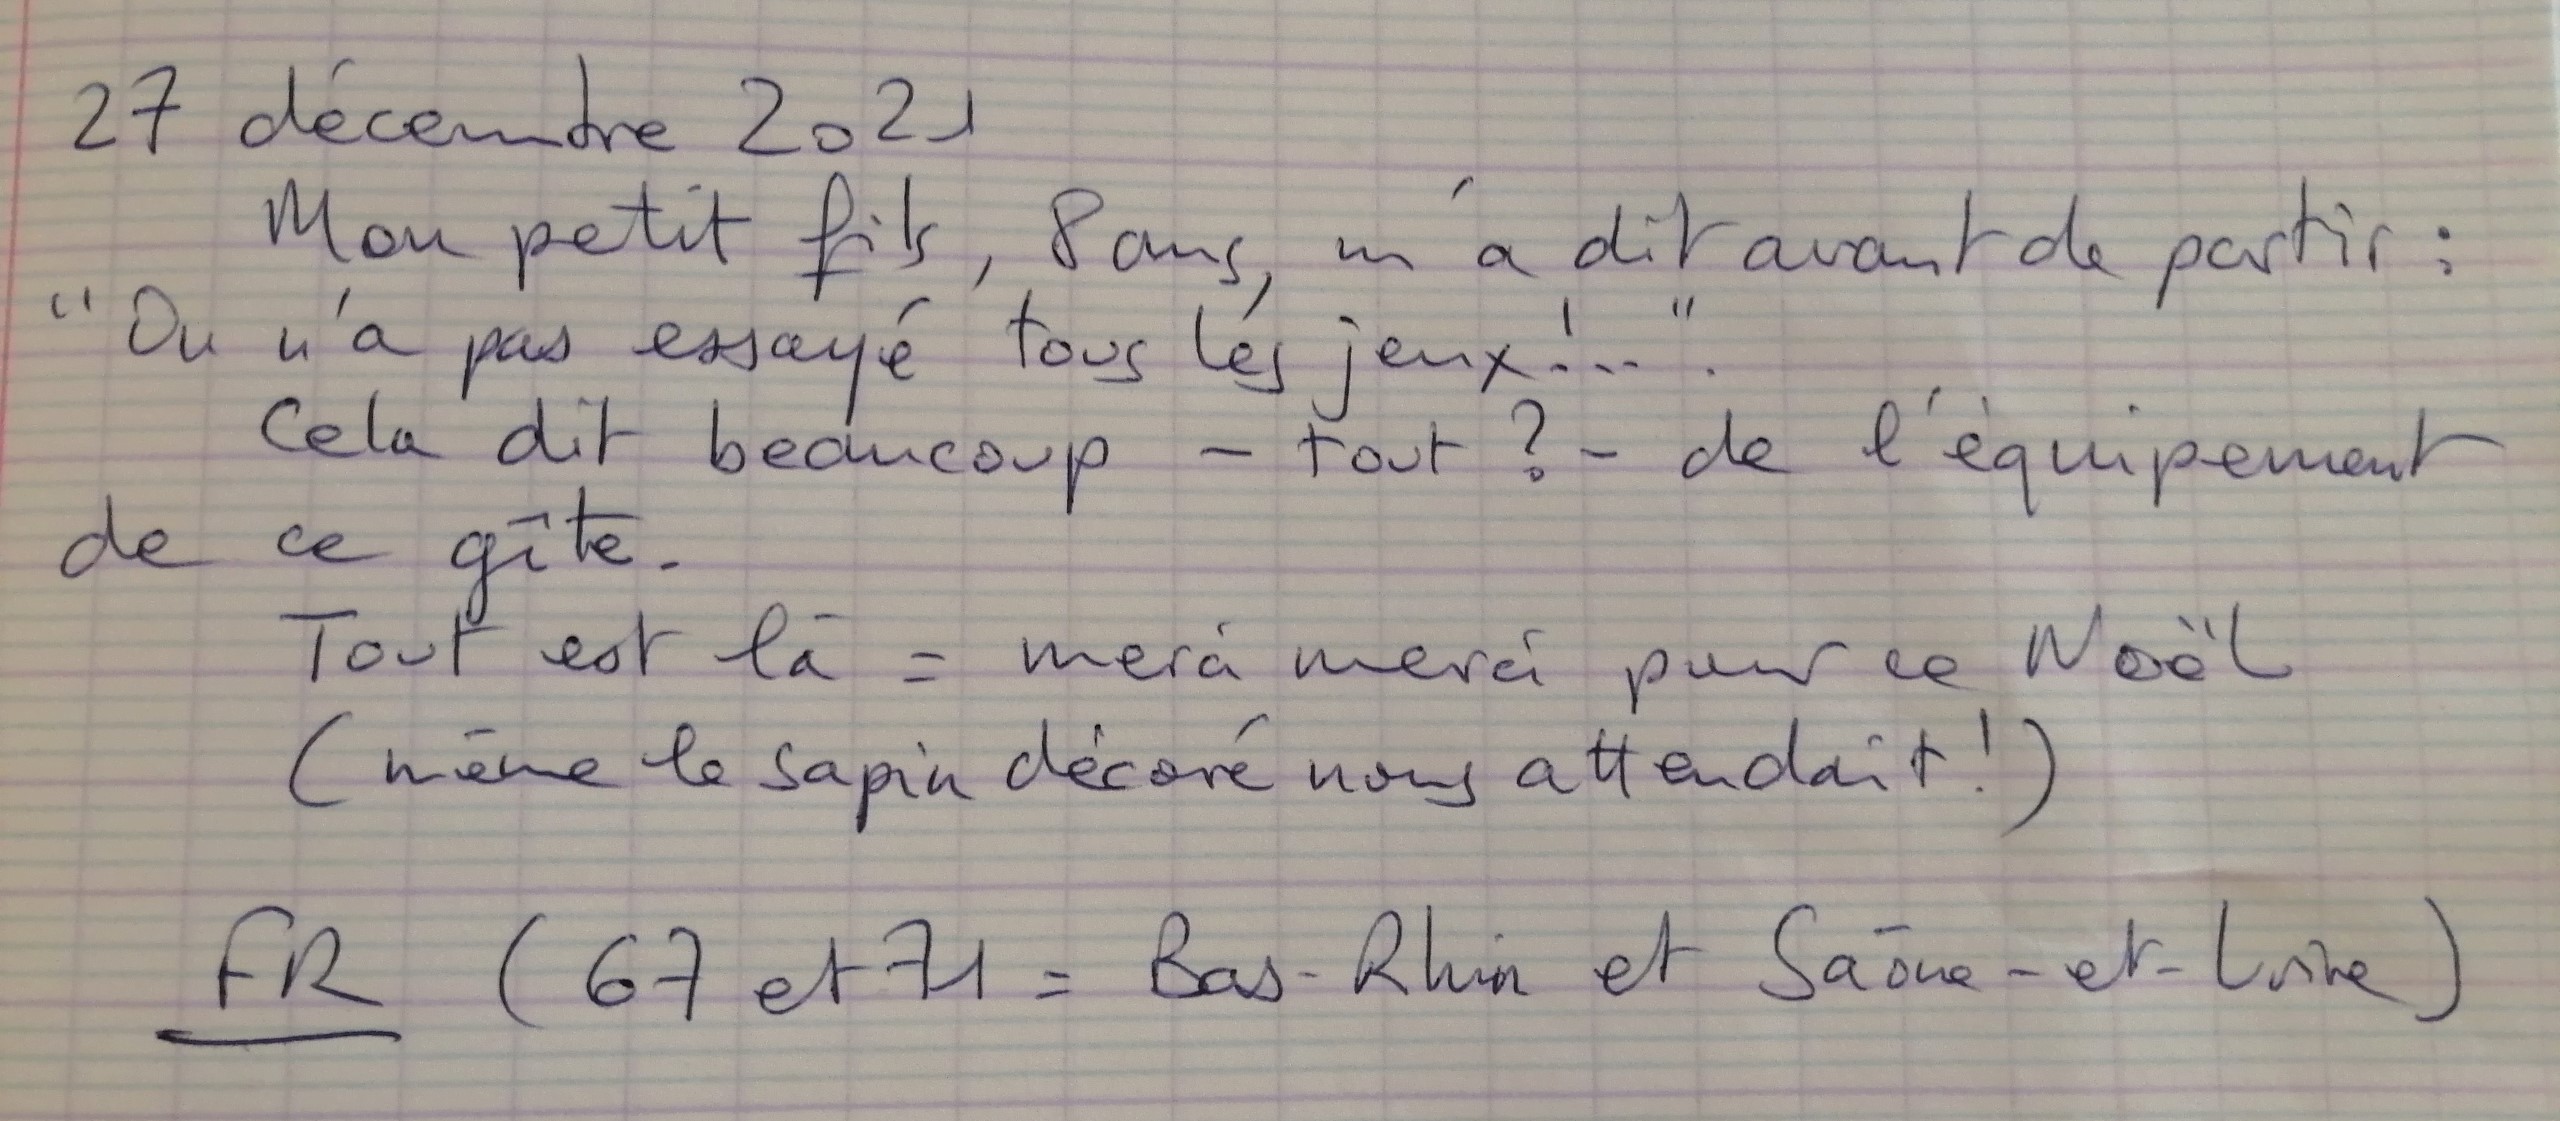 27 décembre 2021
Mon petit fils, 8 ans, m'a dit avant de partir :
"On n'a pas essayé tous les jeux !..".
Cela dit beaucoup - tout ? - de l'équipement
de ce gîte.
Tout est là = merci merci pour ce Noël
(même le sapin décoré nous attendait !)
FR (67 et 71 = Bas-Rhin et Saône-et-Loire)